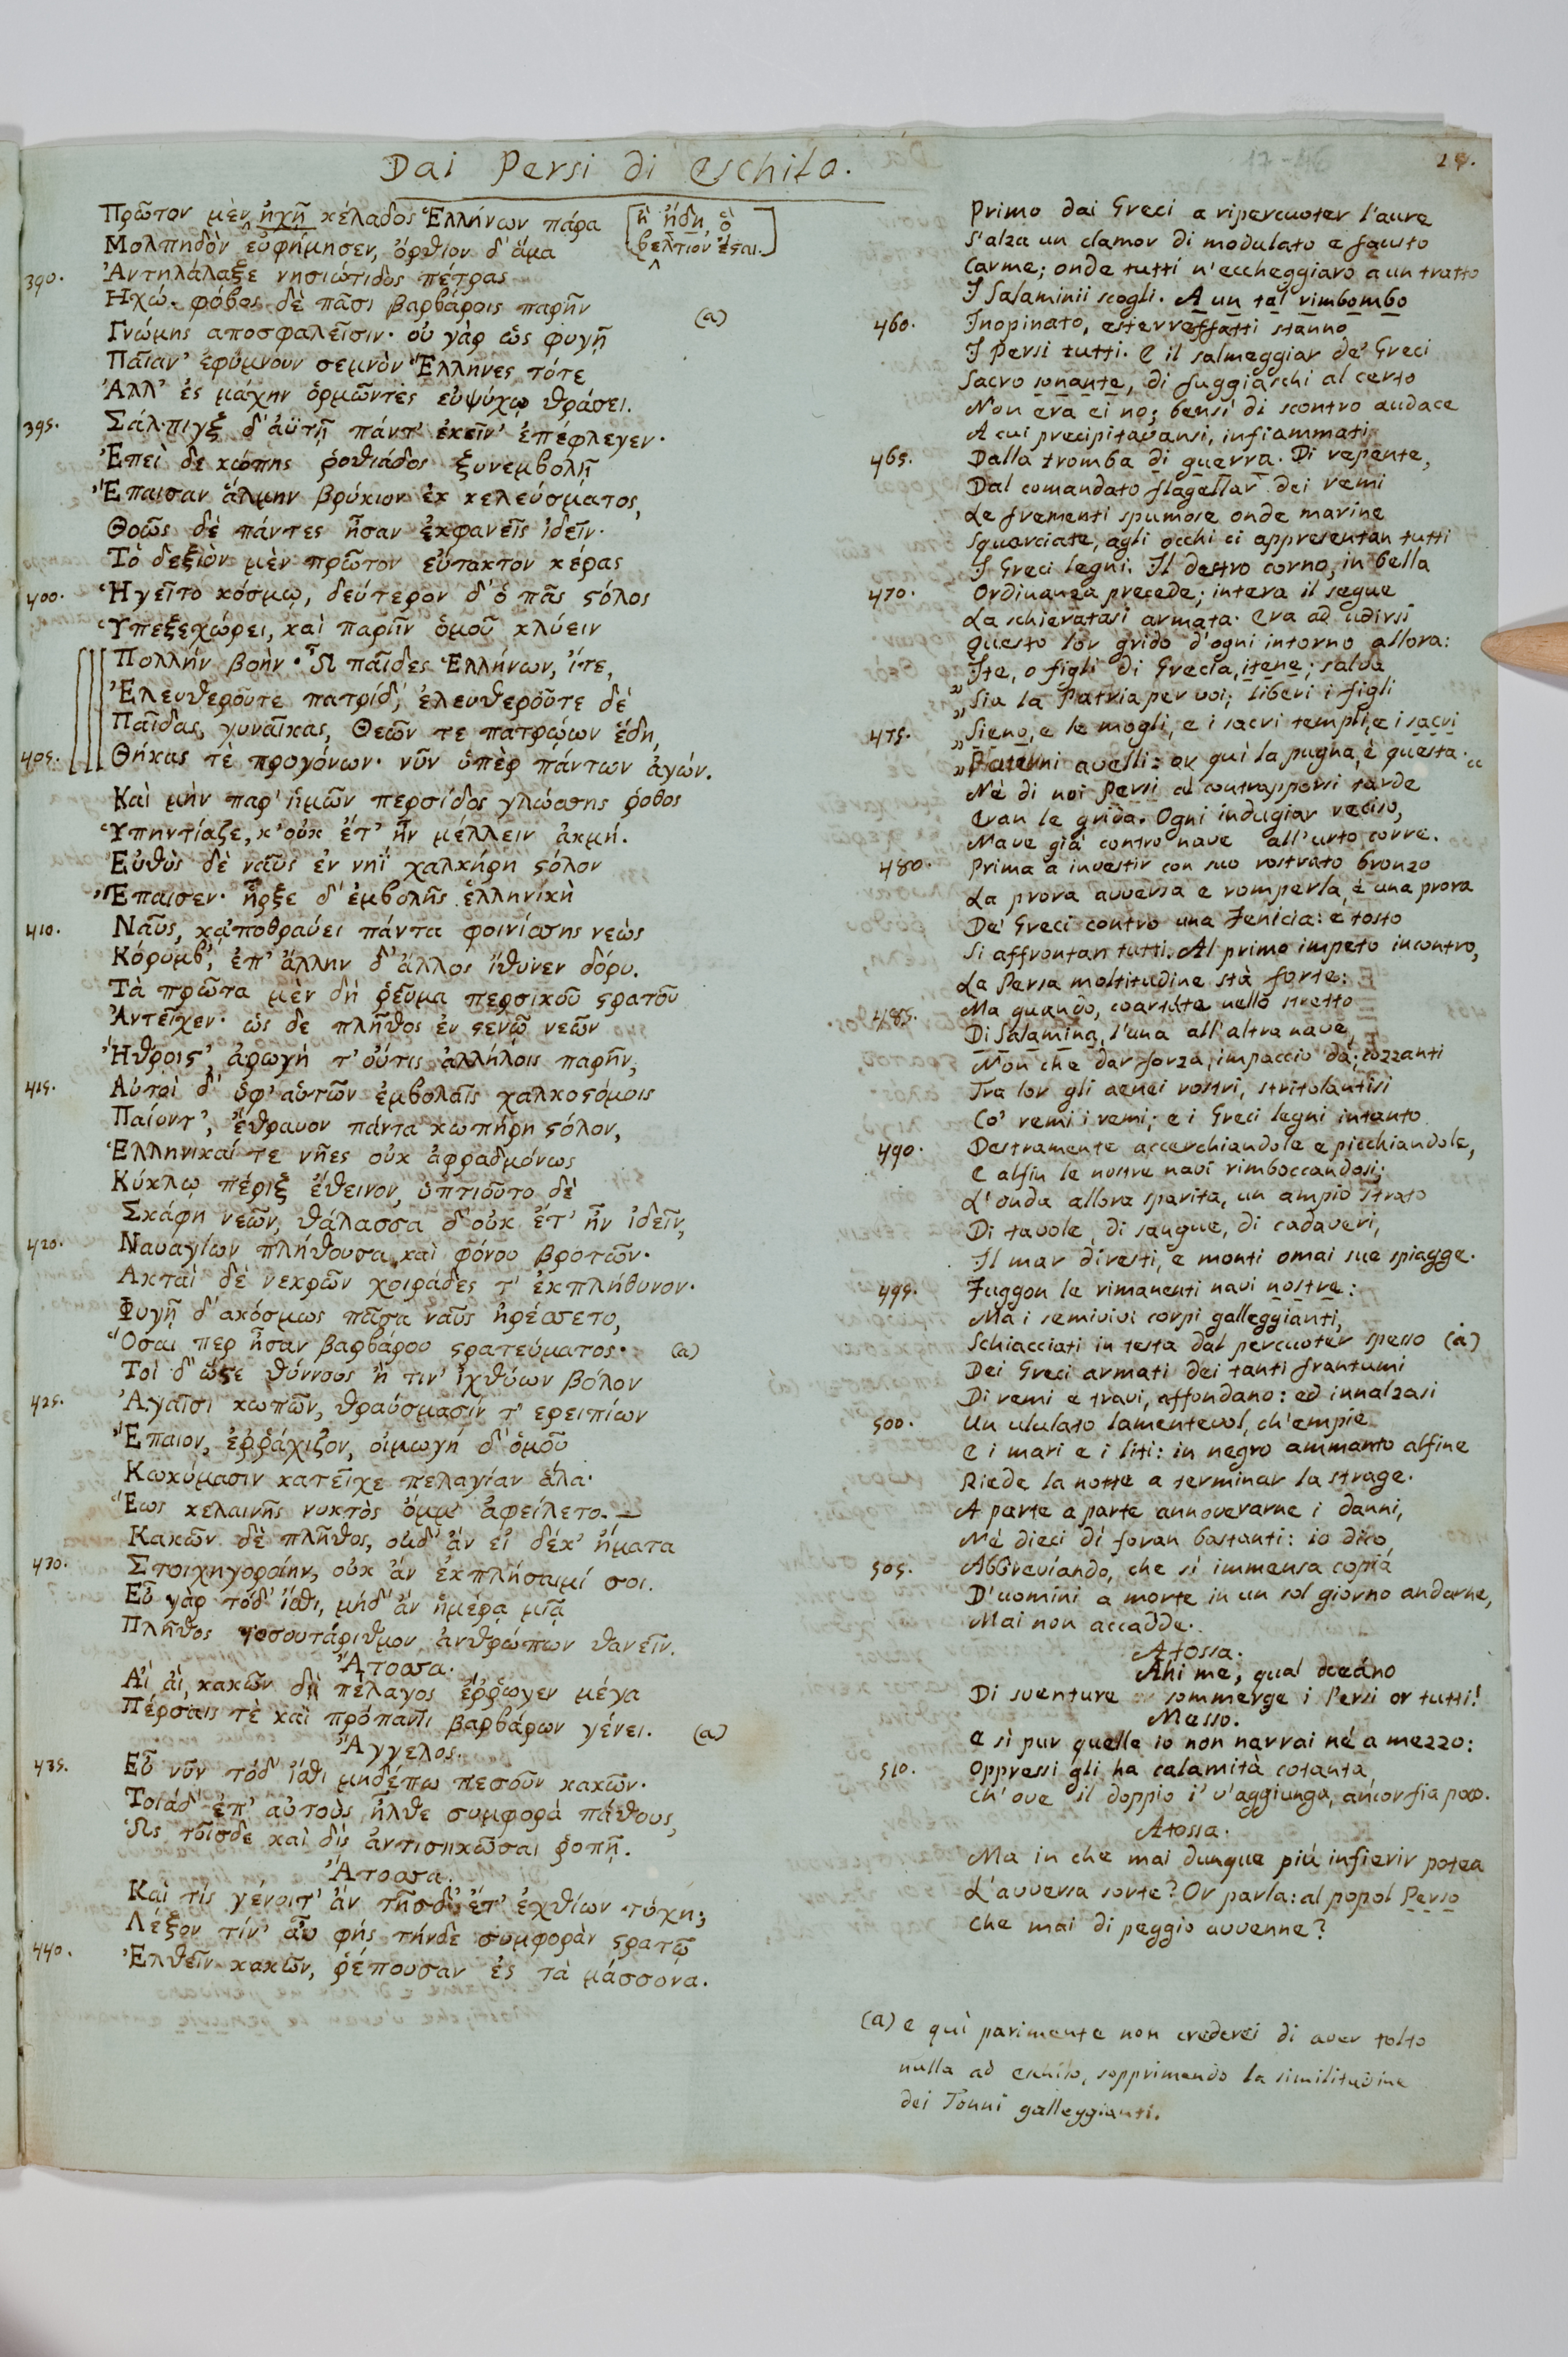 Dai Persi di Eschilo.
29.
Πρῶτον μὲν ἠχῇ κέλαδος Ἑλλήνων πάρα
[ἢ ἤδη, ὃ
Μολπηδὸν εὐφήμησεν, ὄρθιον δ' ἅμα
βελτιον ἔσαι.]
390. Ἀντηλάλαξε νησιώτιδος πέτρας
Ηχώ. φόβος δὲ πᾶσι βαρβάροις παρῆν
(a)
Γνώμης αποσφαλεῖσιν· οὐ γὰρ ὡς φυγῇ
Παῖαν' ἐφύμνουν σεμνὸν Ἕλληνες τότε
Ἀλλ' ἐς μάχην ὁρμῶντες εὐψύχῳ θράσει.
395. Σάλπιγξ δ' ἀϋτῇ πάντ' ἐκεῖν' ἐπέφλεγεν·
Ἐπεὶ δε κώπης ῥοθιάδος ξυνεμβολῇ
Ἔπαισαν ἅλμην βρύχιον ἐκ κελεύσματος,
Θοῶς δὲ πάντες ἦσαν ἐκφανεῖς ἰδεῖν·
Τὸ δεξιὸν μὲν πρῶτον εὔτακτον κέρας
400. Ἡγεῖτο κόσμῳ, δεύτερον δ' ὁ πᾶς ϛόλος
Ὑπεξεχώρει, καὶ παρῆν ὁμοῦ κλύειν
Πολλὴν βοὴν· Ὦ παῖδες Ἑλλήνων, ἴτε,
Ἐλευθεροῦτε πατρίδ', ἐλευθεροῦτε δὲ
Παῖδας, γυναῖκας, Θεῶν τε πατρῴων ἕδη,
405. Θήκας τὲ προγόνων· νῦν ὑπὲρ πάντων ἀγών.
Καὶ μὴν παρ' ἡμῶν περσίδος γλώσσης ῥόθος
Ὑπηντίαζε, κ' οὐκ ἔτ' ἦν μέλλειν ἀκμή.
Εὐθὺς δὲ ναῦς ἐν νηῒ χαλκήρη ϛόλον
Ἔπαισεν· ἦρξε δ' ἐμβολῆς ἑλληνικὴ
410. Ναῦς, κἀποθραύει πάντα φοινίσσης νεὼς
Κόρυμβ', ἐπ' ἄλλην δ' ἄλλος ἴθυνεν δόρυ.
Τὰ πρῶτα μὲν δὴ ῥεῦμα περσικοῦ ϛρατοῦ
Ἀντεῖχεν· ὡς δε πλῆθος ἐν ϛενῷ νεῶν
Ἤθροιϛ', ἀρωγὴ τ' οὔτις ἀλλήλοις παρῆν,
415. Αὐτοὶ δ' ὑφ' αὑτῶν ἐμβολαῖς χαλκοϛόμοις
Παίοντ', ἔθραυον πάντα κωπήρη ϛόλον,
Ἑλληνικαί τε νῆες οὐκ ἀφραδμόνως
Κύκλῳ πέριξ ἔθεινον, ὑπτιοῦτο δὲ
Σκάφη νεῶν, θάλασσα δ' οὐκ ἔτ' ἦν ἰδεῖν,
420. Ναυαγίων πλήθουσα καὶ φόνου βροτῶν·
Ακταὶ δὲ νεκρῶν χοιράδες τ' ἐκπλήθυνον·
Φυγῇ δ' ακόσμως πᾶσα ναῦς ἠρέσσετο,
Ὅσαι περ ἦσαν βαρβάρου ϛρατεύματος· (a)
Τοὶ δ' ὥϛε θύννους ἢ τιν' ἰχθύων βόλον
425. Ἀγαῖσι κωπῶν, θραύσμασίν τ' ερειπίων
Ἔπαιον, ἐῤῥάχιζον, οἰμωγὴ δ' ὁμοῦ
Κωκύμασιν κατεῖχε πελαγίαν ἅλα·
Ἕως κελαινῆς νυκτὸς ὄμμ' ἀφείλετο.—
Κακῶν δὲ πλῆθος, οὐδ' ἄν εἰ δέκ' ἤματα
430. Στοιχηγοροίην, οὐκ ἄν ἐκπλήσαιμί σοι.
Εὖ γάρ τόδ' ἴσθι, μηδ' ἄν ἡμέρᾳ μιᾷ
Πλῆθος τοσουτάριθμον ἀνθρώπων θανεῖν.
Ἄτοσσα.
Αἲ αἲ, κακῶν δὴ πέλαγος ἔῤῥωγεν μέγα
Πέρσαις τὲ καὶ πρόπαντι βαρβάρων γένει. (a)
Ἄγγελος.
435. Εὖ νῦν τόδ' ἴσθι μηδέπω μεσοῦν κακῶν·
Τοιάδ' ἐπ' αὐτοὺς ἦλθε συμφορὰ πάθους,
Ὡς τοῖσδε καὶ δὶς ἀντισηκῶσαι ῥοπῇ.
Ἄτοσσα.
Καὶ τίς γένοιτ' ἄν τῆσδ' ἔτ' ἐχθίων τύχη;
Λέξον τίν' αὖ φὴς τήνδε συμφορὰν ϛρατῷ
440. Ἐλθεῖν κακῶν, ῥέπουσαν ἐς τὰ μάσσονα.
Primo dai Greci a ripercuoter l'aure
S'alza un clamor di modulato e fausto
Carme; onde tutti n'eccheggiaro a un tratto
I Salaminii scogli. A un tal rimbombo
460. Inopinato, esterrefatti stanno
I Persi tutti. E il salmeggiar de' Greci
Sacro sonante, di fuggiaschi al certo
Non era ei no; bensì di scontro audace
A cui precipitavansi, infiammati
465. Dalla tromba di guerra. Di repente,
Dal comandato flagellar dei remi
Le frementi spumose onde marine
Squarciate, agli occhi ci appresentan tutti
I Greci legni. Il destro corno, in bella
470. Ordinanza precede; intera il segue
La schieratasi armata. Era ad udirsi
Questo lor grido d'ogni intorno allora:
"Ite, o figli di Grecia, itene; salva
"Sia la Patria per voi; liberi i figli
475. "Sieno, e le mogli, e i sacri templi, e i sacri
"Paterni avelli: or quì la pugna, è questa."
Nè di noi Persi a contrapporsi tarde
Eran le grida. Ogni indugiar reciso,
Nave già contro nave all'urto corre.
480. Prima a investir con suo rostrato bronzo
La prora avversa e romperla, è una prora
De' Greci contro una Fenicia: e tosto
Si affrontan tutti. Al primo impeto incontro,
La Persa moltitudine stà forte:
485. Ma quando, coartate nello stretto
Di Salamina, l'una all'altra nave,
Non che dar forza, impaccio dà; cozzanti
Tra lor gli aenei rostri, stritolantisi
Co' remi i remi; e i Greci legni intanto
490. Destramente accerchiandole e picchiandole,
E alfin le nostre navi rimboccandosi;
L'onda allora sparita, un ampio strato
Di tavole, di sangue, di cadaveri,
Il mar divesti, e monti omai sue spiagge.
495. Fuggon le rimanenti navi nostre:
Ma i semivivi corpi galleggianti,
Schiacciati in testa dal percuoter spesso (a)
Dei Greci armati dei tanti frantumi
Di remi e travi, affondano: ed innalzasi
500. Un ululato lamentevol, ch'empie
E i mari e i liti: in negro ammanto alfine
Riede la notte a terminar la strage.
A parte a parte annoverarne i danni,
Nè dieci dì foran bastanti: io dico,
505. Abbreviando, che sì immensa copia
D'uomini a morte in un sol giorno andarne,
Mai non accadde.
Atossa.
Ahi me, qual oceano
Di sventure sommerge i Persi or tutti!
Messo.
E sì pur quelle io non narrai nè a mezzo:
510. Oppressi gli ha calamità cotanta,
Ch'ove il doppio i' v'aggiunga, ancor fia poco.
Atossa.
Ma in che mai dunque più infierir potea
L'avversa sorte? Or parla: al popol Perso
Che mai di peggio avvenne?
(a) E quì parimente non crederei di aver tolto
nulla ad Eschilo, sopprimendo la similitudine
dei Tonni galleggianti.